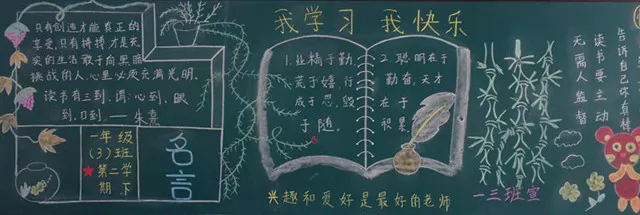 只有创造才能真正的
享受,只有拼搏才是充
实的生活敢于向黑暗
挑战的人,心里必须充满光明。
读书有三到,谓:心到、眼
到、口到。——朱熹
一年级
(3)班
第二学
期下
名言
我学习 我快乐
1.业精于勤,
荒于嬉;行
成于思,毁
于随。
2.聪明在于
勤奋,天才
在于
积累
兴趣和爱好是最好的老师
告诉自己你真棒
读书要主动
无需人监督
一三班宣
我